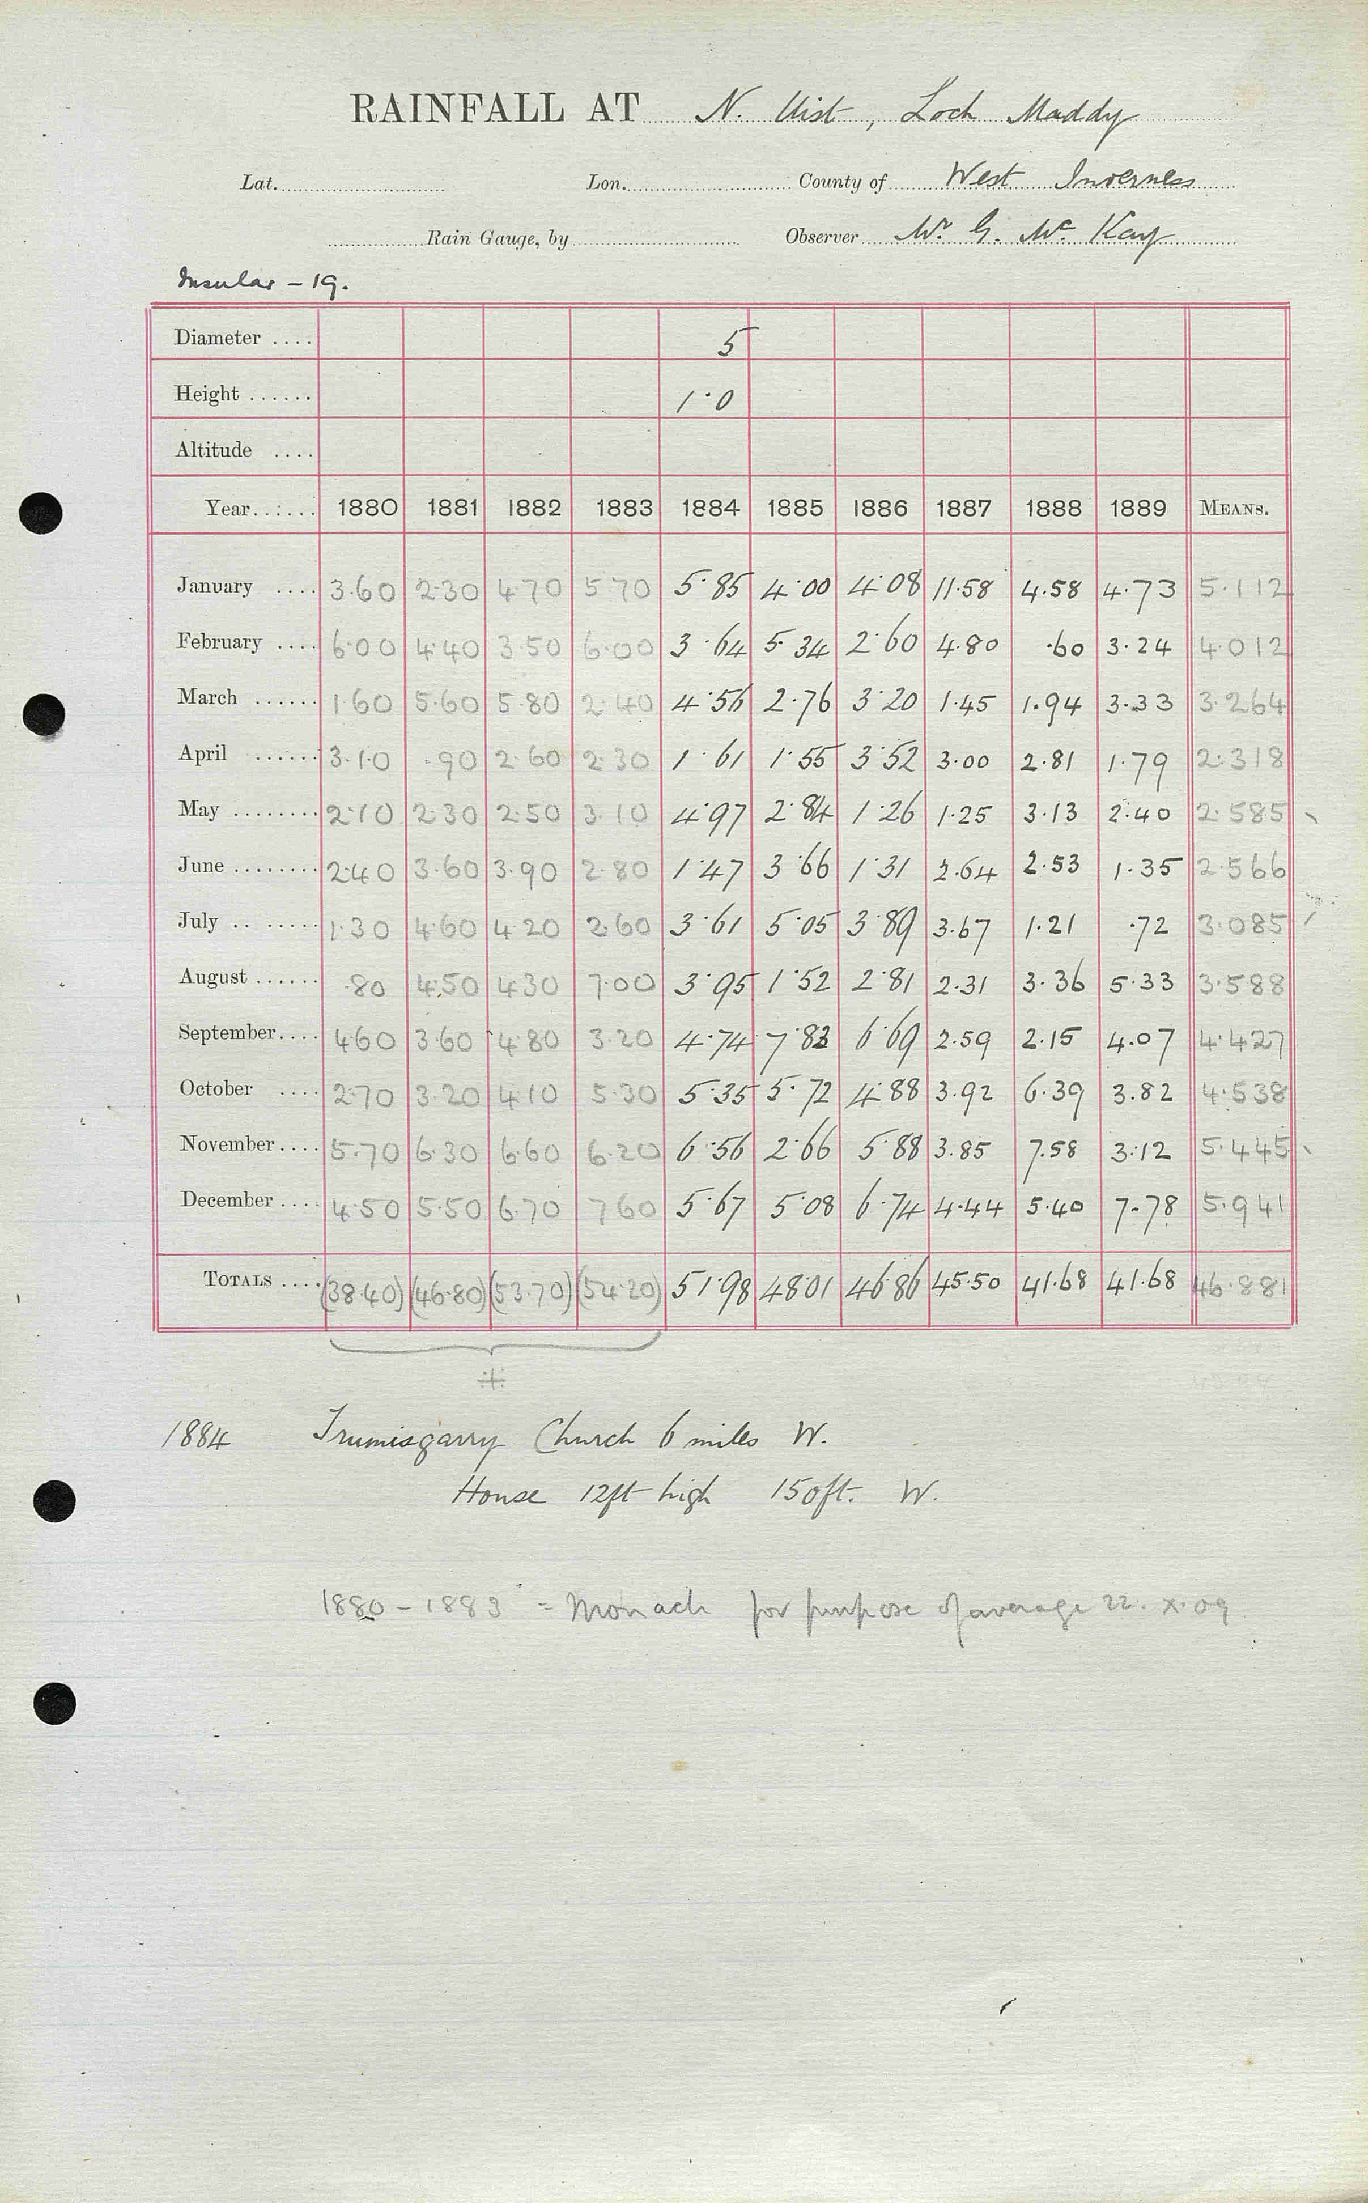 RAINFALL AT N. Uist, Loch Maddy
Lat. Lon. County of West Inverness
Rain Gauge, by Observer Mr. G. Mc Kay
Insular - 19.
Diameter .... 5
Height ...... 1·0
Altitude ....
Year...... 1880 1881 1882 1883 1884 1885 1886 1887 1888 1889 MEANS.
January .... 3.60 2.30 4.70 5.70 5.85 4.00 4.08 11.58 4.58 4.73 5.112
February .... 6.00 4.40 3.50 6.00 3.64 5.34 2.60 4.80 .60 3.24 4.012
March ...... 1.60 5.60 5.80 2.40 4.56 2.76 3.20 1.45 1.94 3.33 3.264
April ...... 3.10 .90 2.60 2.30 1.61 1.55 3.52 3.00 2.81 1.79 2.318
May ........ 2.10 2.30 2.50 3.10 4.97 2.84 1.26 1.25 3.13 2.40 2.585
June ........ 2.40 3.60 3.90 2.80 1.47 3.66 1.31 2.64 2.53 1.35 2.566
July ........ 1.30 4.60 4.20 2.60 3.61 5.05 3.89 3.67 1.21 .72 3.085
August ...... .80 4.50 4.30 7.00 3.95 1.52 2.81 2.31 3.36 5.33 3.588
September.... 4.60 3.60 4.80 3.20 4.74 7.83 6.69 2.59 2.15 4.07 4.427
October .... 2.70 3.20 4.10 5.30 5.35 5.72 4.88 3.92 6.39 3.82 4.538
November .... 5.70 6.30 6.60 6.20 6.56 2.66 5.88 3.85 7.58 3.12 5.445
December .... 4.50 5.50 6.70 7.60 5.67 5.08 6.74 4.44 5.40 7.78 5.941
TOTALS .... (38.40) (46.80) (53.70) (54.20) 51.98 48.01 46.86 45.50 41.68 41.68 46.881
*
1884 Trumisgarry Church 6 miles W.
House 12ft high 150ft. W.
1880 - 1883 = Monach for purpose of average 22. X. 09